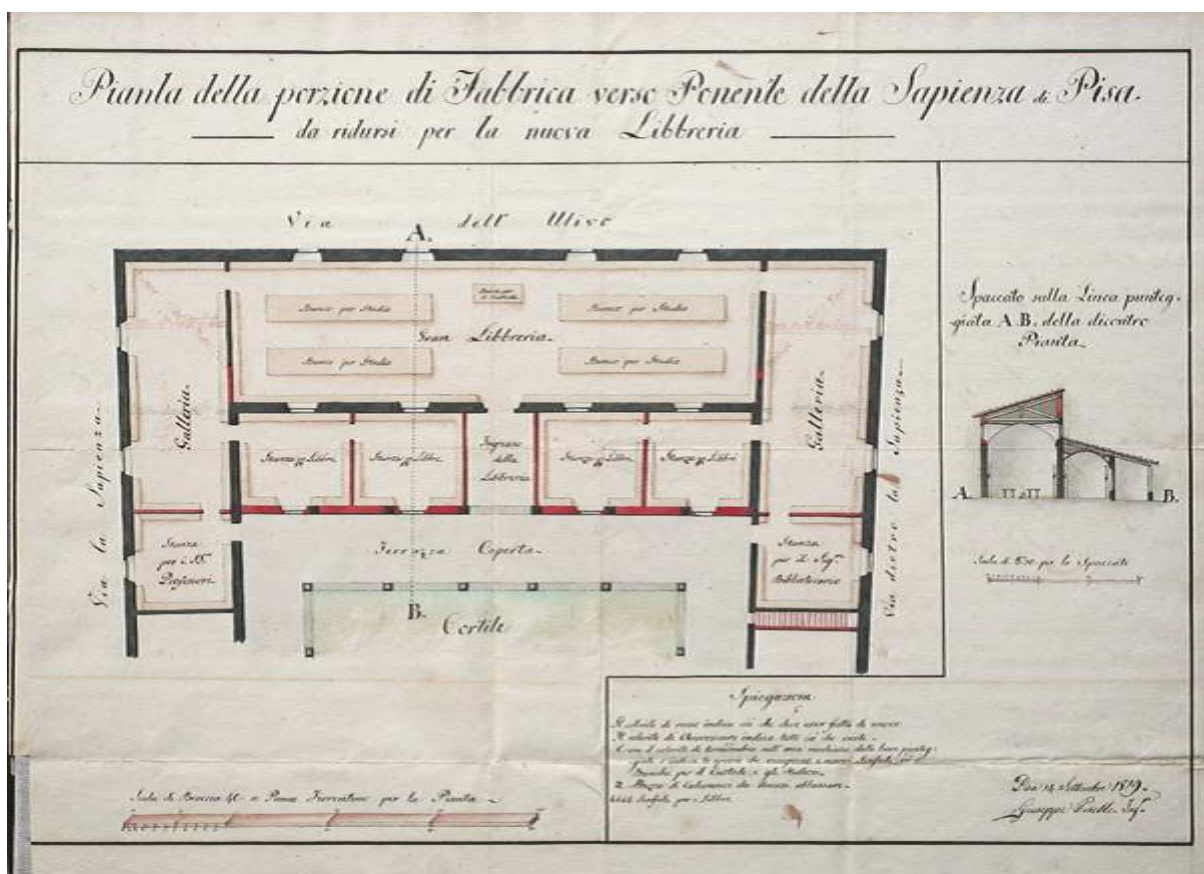 Pianta della porzione di Fabbrica verso Ponente della Sapienza di Pisa.
da ridursi per la nuova Libbreria
Via dell' Ulivo
A.
Banco per Studio
Banco per Studio
Gran Libbreria.
Banco per Studio
Banco per Studio
Galleria.
Galleria.
Via la Sapienza
Via dietro la Sapienza.
Stanza pr Libbri
Stanza pr Libbri
Ingresso
della
Libbreria
Stanza pr Libbri
Stanza pr Libbri
Stanza
per i SS.
Professori
Terrazza Coperta.
Stanza
per il Sigr.
Bibliotecario
B.
Cortile
Spaccato sulla Linea punteg-
giata A.B. della dicontro
Pianta.
A. B.
Scala di per lo Spaccato
Spiegazioni
Il colorito di rosso indica ciò che deve esser fatto di nuovo
Il colorito di indica tutto ciò che esiste.
Banche per il Custode e gli
Scaffali per i Libbri
Scala di Braccia 40 a Panno Fiorentine per la Pianta
14 Settembre 1819.
Giuseppe